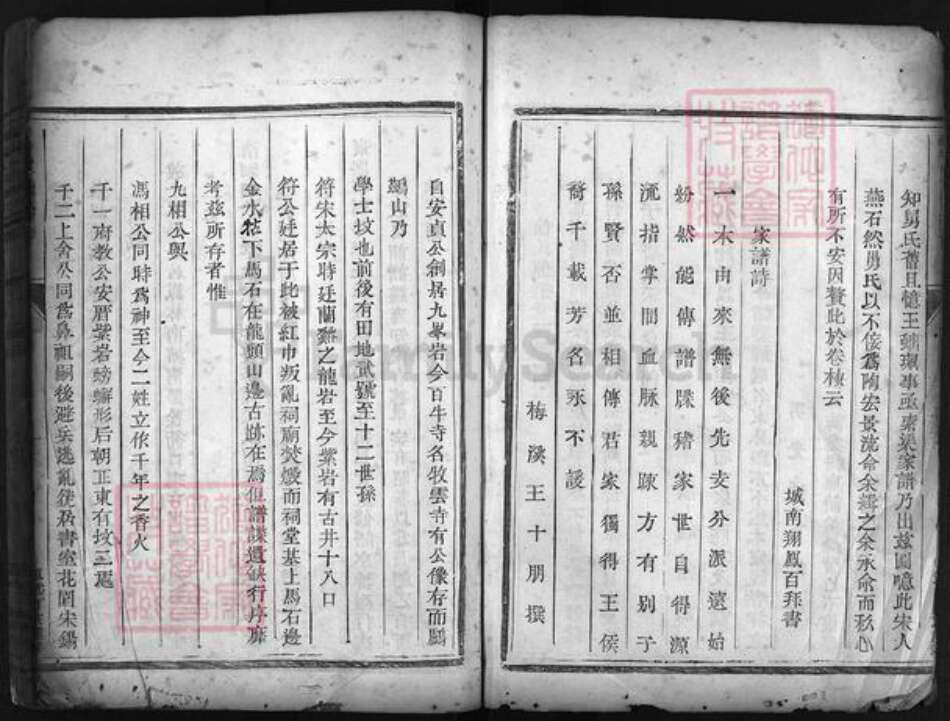 知舅氏
家譜乃出茲圖噫此宋人
燕石然舅氏以不佞為陶宏景流命余緝之余承命而
有所不安因贅此於卷
云
城南翔鳳百拜書
家譜詩
一木由來無後先支分派遠始
紛然能傳譜牒稽家世自得源
流指掌間血脉親疎方有别子
孫賢否並相傳君家獨得王侯
裔千載芳名永不諼
梅溪王十朋撰
自安貞公創居九
岩今百牛寺名牧雲寺有公像存而
山乃
學士坟也前後有田地貳
至十二世孫
符宋太宗時廷蘭
之龍岩至今紫岩有古井十八口
符公廷居于此被紅巾叛亂祠廟焚燬而祠堂基上馬石邊
金水
下馬石在龍頭山邊古跡在焉但譜諜遺缺行序靡
考茲所存者惟
九相公與
馮相公同時為神至今二姓立
千年之香火
千一府教公安厝紫岩螃蟹形后朝正東有坟三
千二上舍公同為鼻祖嗣後避兵逃亂徙居書室花園朱錫
FamilySearch